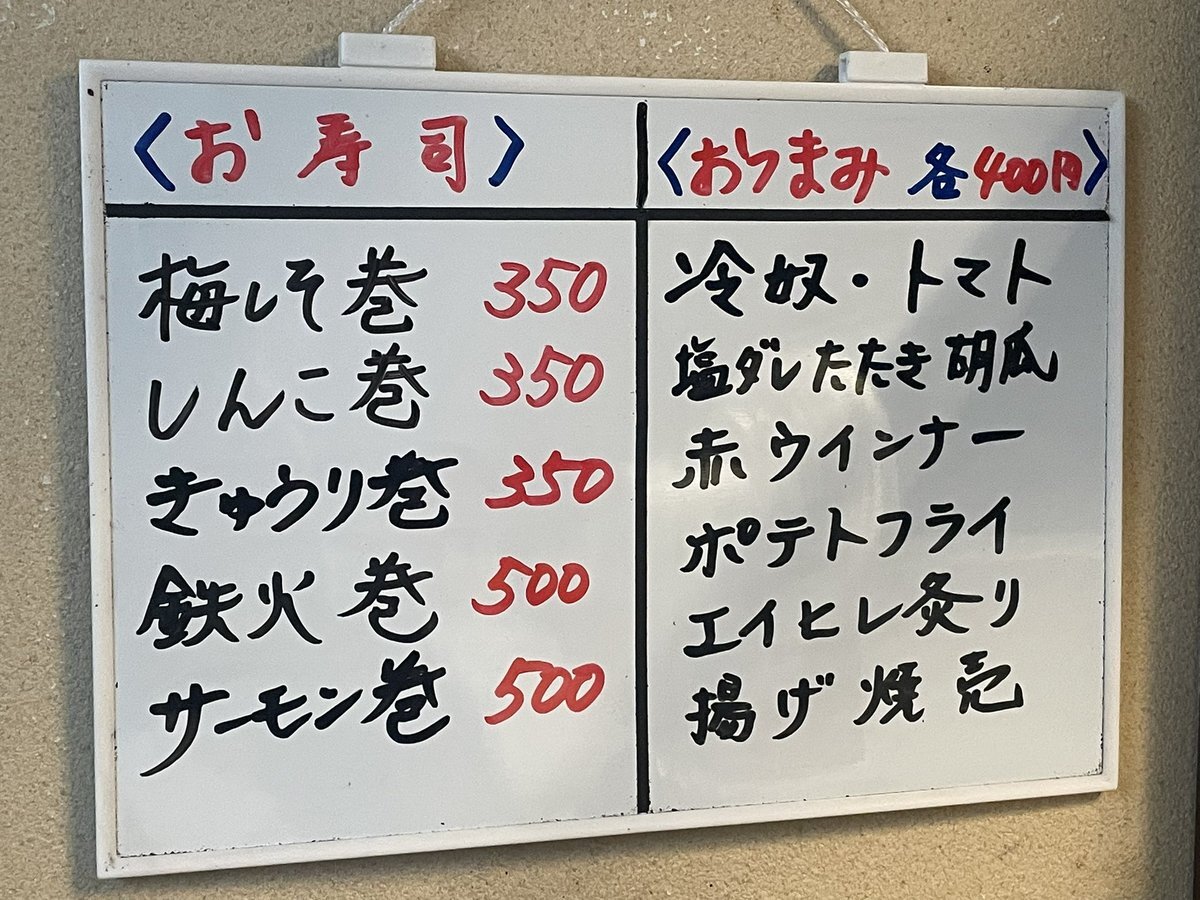 〈お寿司〉
梅しそ巻 350
しんこ巻 350
きゅうり巻 350
鉄火巻 500
サーモン巻 500
〈おつまみ 各400円〉
冷奴・トマト
塩ダレたたき胡瓜
赤ウインナー
ポテトフライ
エイヒレ炙り
揚げ焼売